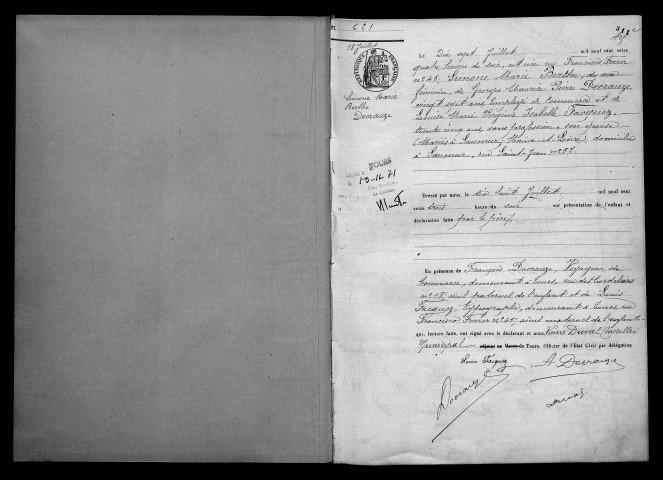 621
18 Juillet
Simone Marie
Berthe
Decrauze
Décédée à TOURS
le 13-12-71
Le Dix sept Juillet mil neuf cent seize
quatre heures du soir, est née rue Francisco Ferrer
n° 46, Simone Marie Berthe, du sexe
féminin, de Georges Maurice Pierre Decrauze,
vingt sept ans Employé de Commerce et de
Louise Marie Virginie Isabelle Facquez,
trente cinq ans, sans profession, son épouse
(Mariés à Saumur, Maine et Loire), domiciliés
à Saumur, rue Saint-Jean n°
Dressé par nous, le dix huit Juillet mil neuf cent
seize trois heures du soir sur présentation de l'enfant et
déclaration faite par le père,
En présence de François Decrauze, Voyageur de
Commerce, demeurant à Tours, rue des Cordeliers
n° 18, aïeul paternel de l'enfant et de Louis
Facquez, Typographe, demeurant à Tours rue
Francisco Ferrer n° 46, aïeul maternel de l'enfant
qui, lecture faite, ont signé avec le déclarant et nous, Duval Conseiller
Municipal de Tours. Officier de l'État Civil par délégation
Louis Facquez
A. Decrauze
Decrauze
Duval